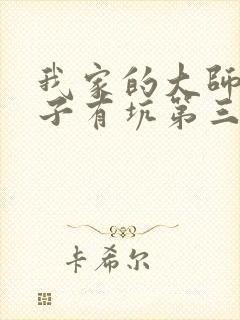 我家的大師
子有坑第三
卡希尔